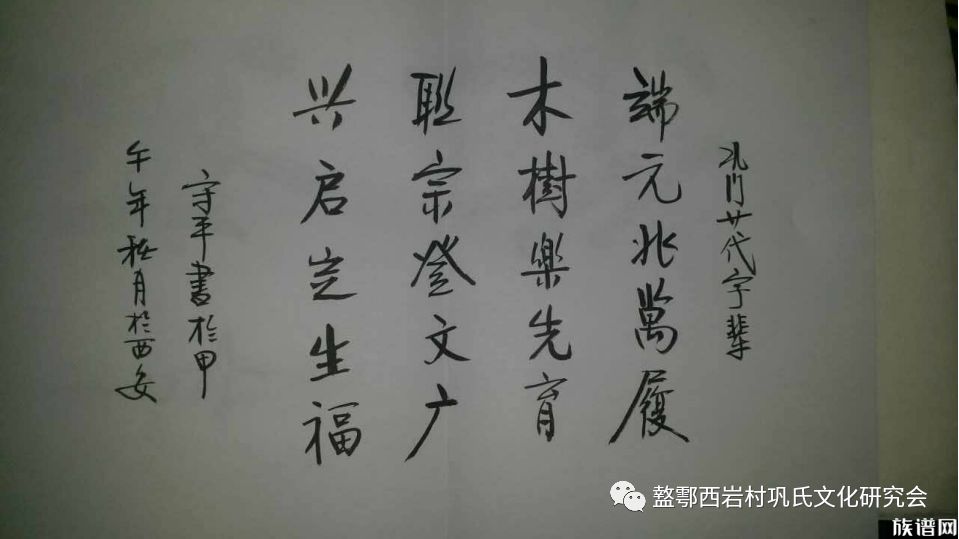 巩门廿代字輩
端元兆萬履
木樹樂先育
联宗登文广
兴启定生福
守平書於甲
午年秋月於西安
盩鄠西岩村巩氏文化研究会
族谱网